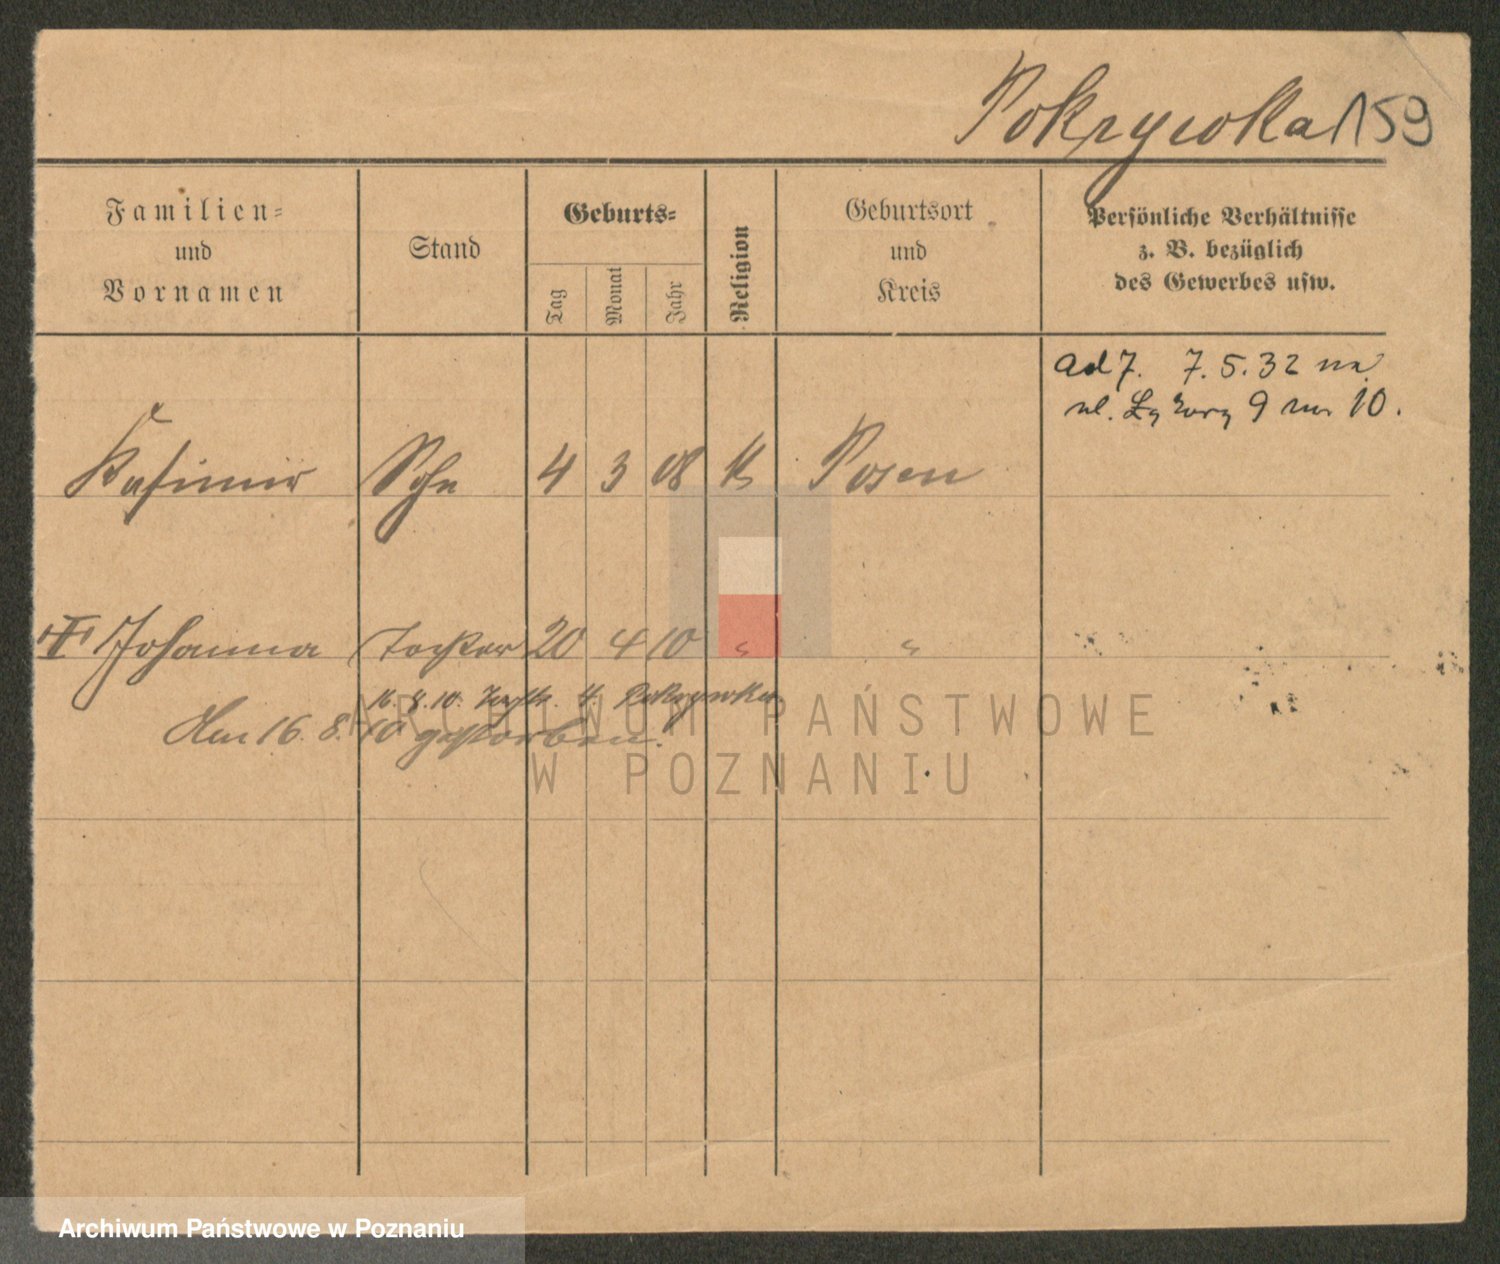 Pokrywka 159
Familien=
und
Vornamen
Stand
Geburts=
Tag
Monat
Jahr
Religion
Geburtsort
und
Kreis
Persönliche Verhältnisse
z. B. bezüglich
des Gewerbes usw.
ad 7. 7.5.32 na
ul. 9 m 10.
Kasimir Sohn 4 3 08 K Posen
Johanna Tochter 20 4 10 " "
16. 8. 10. Pokrywka
Am 16. 8. 10 gestorben.
ARCHIWUM PAŃSTWOWE
W POZNANIU
Archiwum Państwowe w Poznaniu